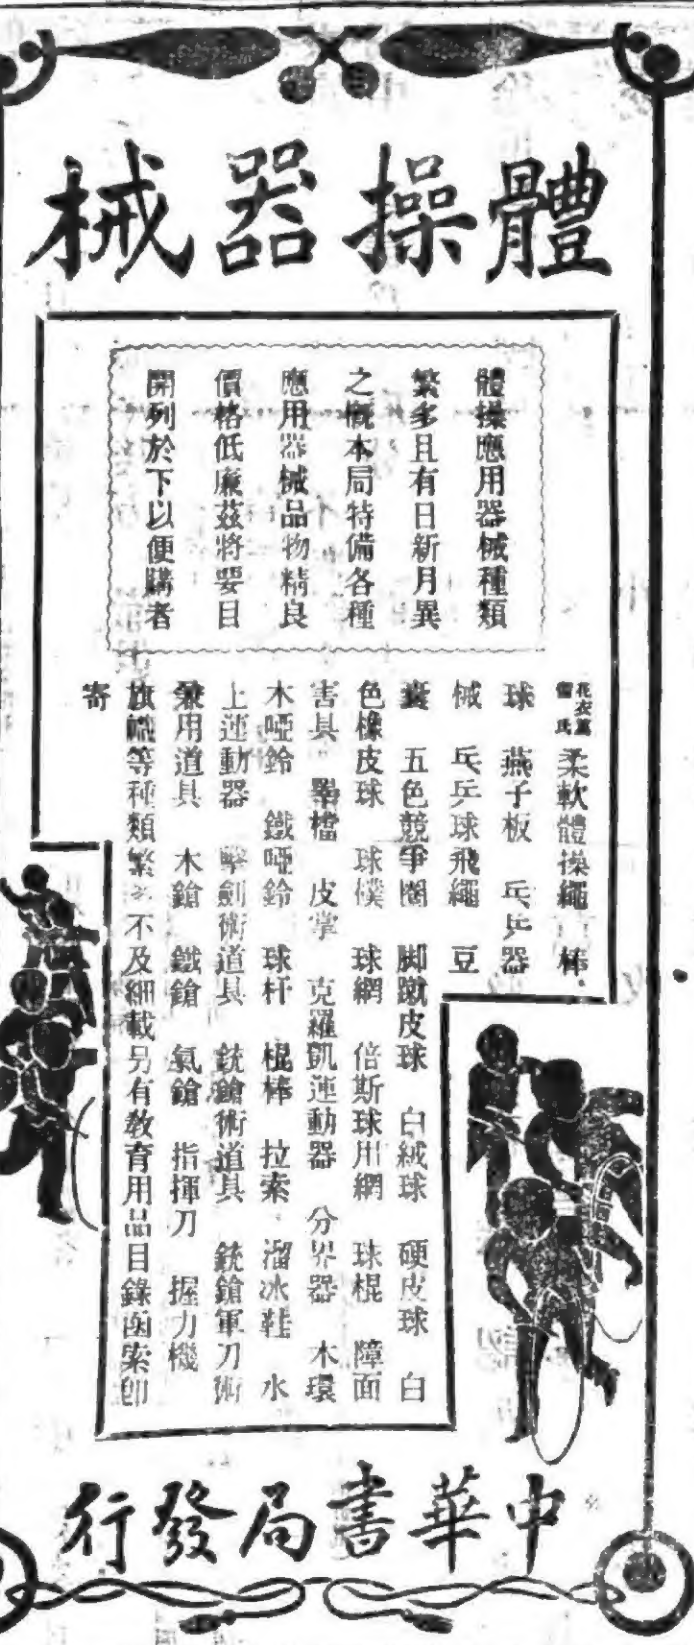 體操器械
體操應用器械種類
繁多且有日新月異
之概本局特備各種
應用器械品物精良
價格低廉茲將要目
開列於下以便購者
柔軟體操繩 棒
球 燕子板 乓乒器
械 乓乒球飛繩 豆
囊 五色競爭圈 脚蹴皮球 白絨球 硬皮球 白
色橡皮球 球樸 球網 倍斯球用網 球棍 障面
害具 單檔 皮掌 克羅凱運動器 分界器 木環
木啞鈴 鐵啞鈴 球杆 棍棒 拉索 溜冰鞋 水
上運動器 擊劍術道具 銃鎗術道具 銃鎗軍刀術
兼用道具 木鎗 鐵鎗 氣鎗 指揮刀 握力機
旗幟等種類繁多不及細載另有教育用品目錄函索卽
寄
中華書局發行